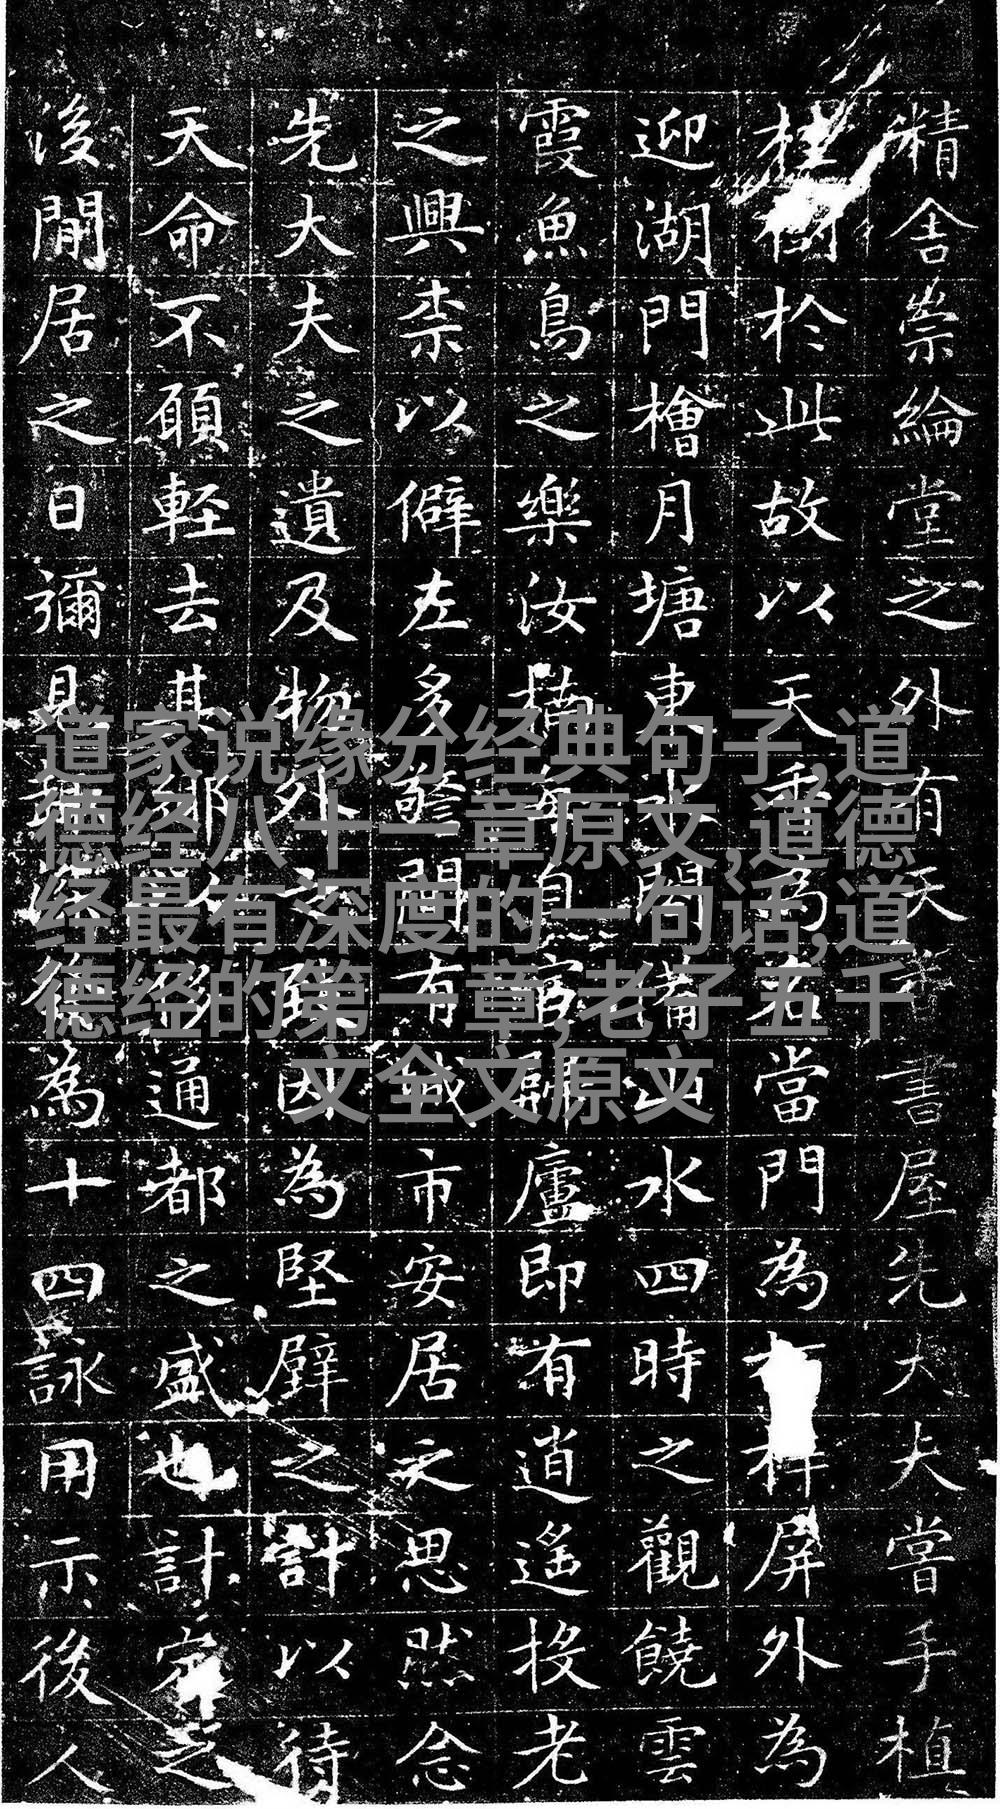 精舍崇綸堂之外有天書屋先大夫嘗手植
桂樹於此故以天名當門為屏外為
迎湖門檜月塘東水閣備山水四時之觀饒雲
霞魚鳥之樂汝楠每自官歸廬即有逍遙投老
之興柰以僻左多警間有城市安居之思然念
先大夫之遺及物外之因為堅壁之計以待
天命不願輕去其鄉通都之盛也計定之
後閒居之日彌見為十四詠用示後人
道家说缘分经典句子,道
德经八十一章原文,道德
经最有深度的一句话,道
德经的第一章,老子五千
文全文原文